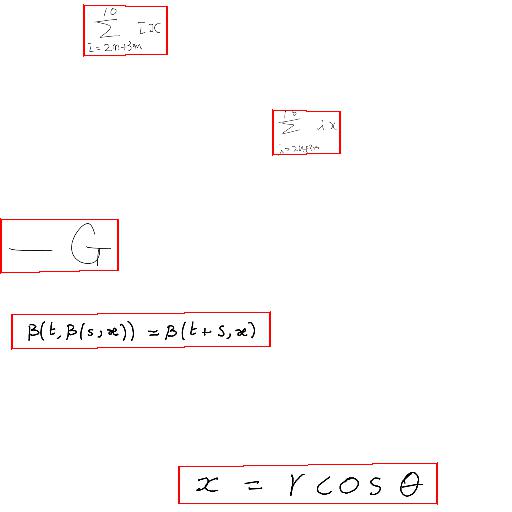 \sum_{i=2n+3m}^{10} ix
\sum_{i=2n+3m}^{10} ix
- G
β(t, β(s, x)) = β(t + s, x)
x = r cos θ